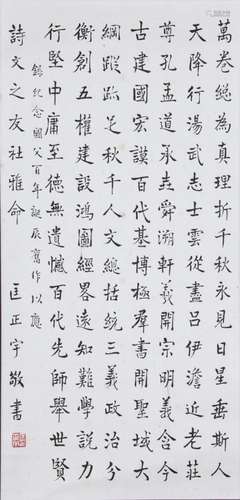 萬卷總為真理折千秋永見日星垂斯人
天降行湯武志士雲從盡呂伊澹近老莊
尊孔孟道承堯舜溯軒羲開宗明義含今
古建國宏謨百代基博極羣書開聖域大
綱蹤跡足秋千人文總括統三義政治分
衡創五權建設鴻圖經畧遠知難學說力
行堅中庸至德無遺憾百代先師舉世賢
錄紀念國父百年誕辰舊作以應
詩文之友社雅命 匡正宇敬書